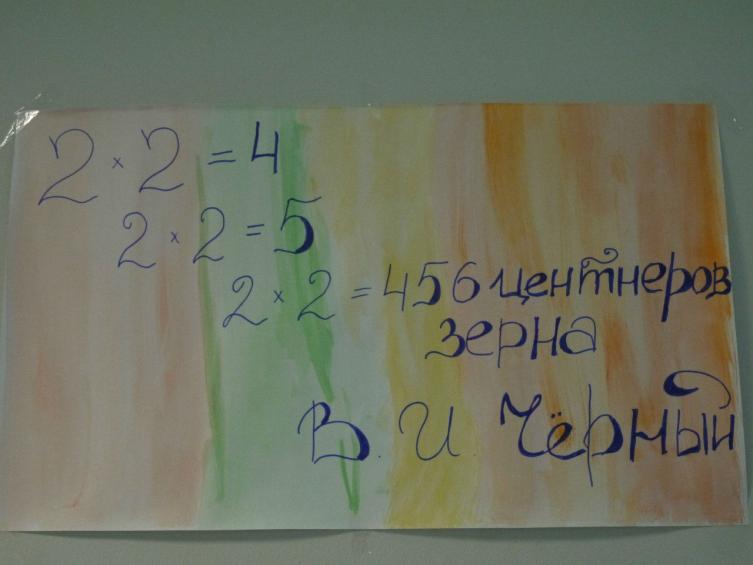 2 × 2 = 4
2 × 2 = 5
2 × 2 = 456 центнеров
зерна
В. И. Чёрный